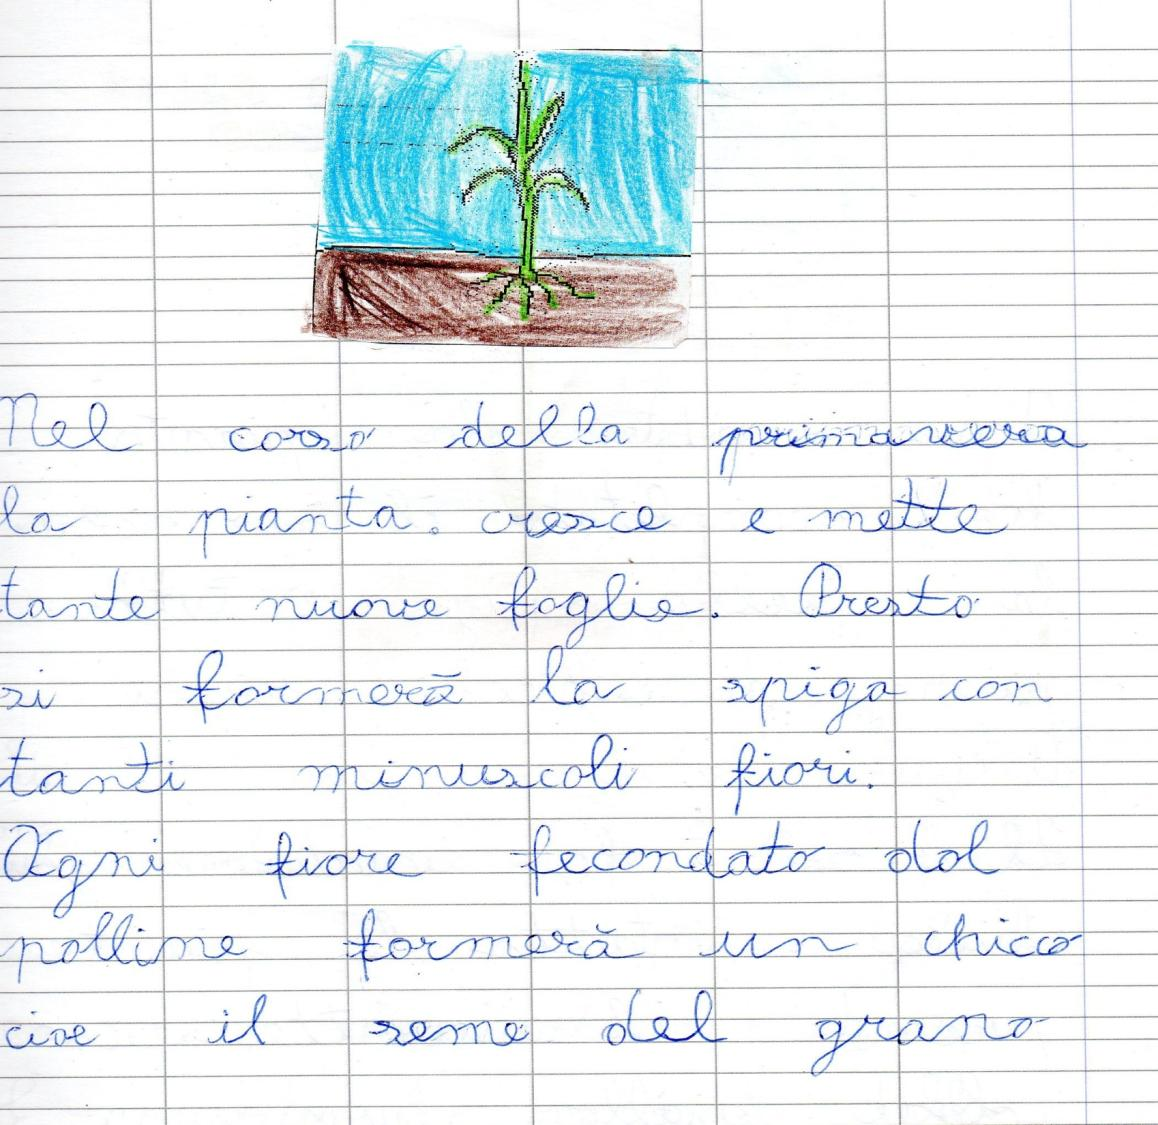 Nel corso della primavera
la pianta. cresce e mette
tante nuove foglie. Presto
si formerà la spiga con
tanti minuscoli fiori.
Ogni fiore fecondato dal
polline formerà un chicco
cioe il seme del grano